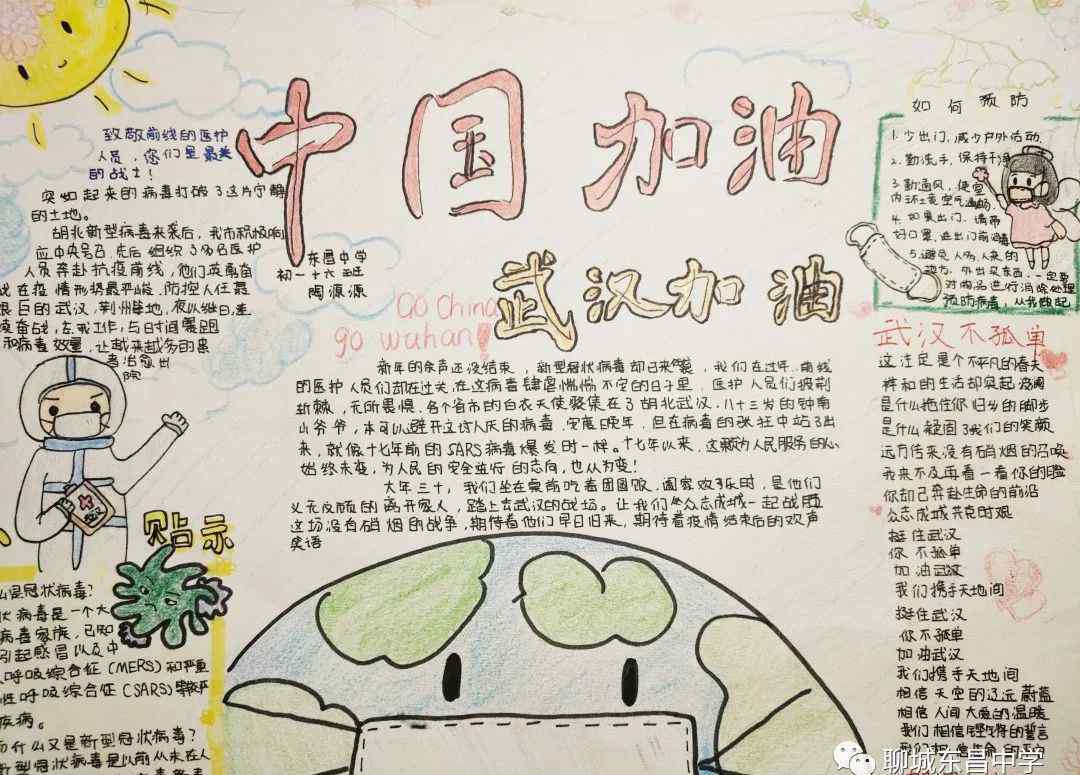 中国加油
武汉加油
Go China
go wuhan!
东昌中学
初一十六班
陶源源
致敬前线的医护
人员，您们是最美
的战士！
突如起来的病毒打破了这片宁静
的土地。
胡北新型病毒来袭后，我市积极响
应中央号召，先后组织了多名医护
人员奔赴抗疫前线，他们英勇奋
战在疫情形势最严峻，防控人任最
艰巨的武汉，荆州等地，夜以继日，连
续奋战，忘我工作，与日时间赛跑
和病毒较量，让越来越多的患
者治愈出
院
贴示
么是冠状病毒？
状病毒是一个大
病毒家族，已知
引起感冒以及中
呼吸综合征(MERS)和严重
性呼吸综合征(SARS)等较严
疾病。
为什么又是新型冠状病毒？
新型冠状病毒是以前从未在人
新年的余声还没结束，新型冠状病毒却已来袭，我们在过年，前线
的医护人员们却在过关，在这病毒肆虐惴惴不安的日子里，医护人员们披荆
斩棘，无所畏惧，各个省市的白衣天使聚集在了胡北武汉，八十三岁的钟南
山爷爷，本可以避开这场人民的病毒，安度晚年，但在病毒的张狂中站了出
来，就像十七年前的SARS病毒爆发时一样。十七年以来，这颗为人民服务的心
始终未变，为人民的安全並行的志向，也从为变！
大年三十，我们坐在桌前吃着团圆饭，阖家欢乐时，是他们
义无反顾的离开家人，踏上去武汉的战场。让我们众志成城一起战胜
这场没有硝烟的战争，期待着他们早日归来，期待着疫情结束后的欢声
笑语
如何预防
1.少出门，减少户外活动
2.勤洗手，保持干净
3.勤通风，使室
内环境空气流畅
4.如果出门，请带
好口罩，进出门前消毒
5.避免人多，人来的
地方，外出买东西，一定要
对物品进行消除处理
预防病毒，从我做起
武汉不孤单
这注定是个不平凡的春天
祥和的生活却突起波澜
是什么拖住你归乡的脚步
是什么凝固了我们的笑颜
远方传来没有硝烟的召唤
我来不及再看一看你的脸
你却已奔赴生命的前沿
众志成城共克时艰
挺住武汉
你不孤单
加油武汉
我们携手天地间
挺住武汉
你不孤单
加油武汉
我们携手天地间
相信天空的辽远蔚蓝
相信人间大爱的温暖
我们相信铿锵的誓言
聊城东昌中学